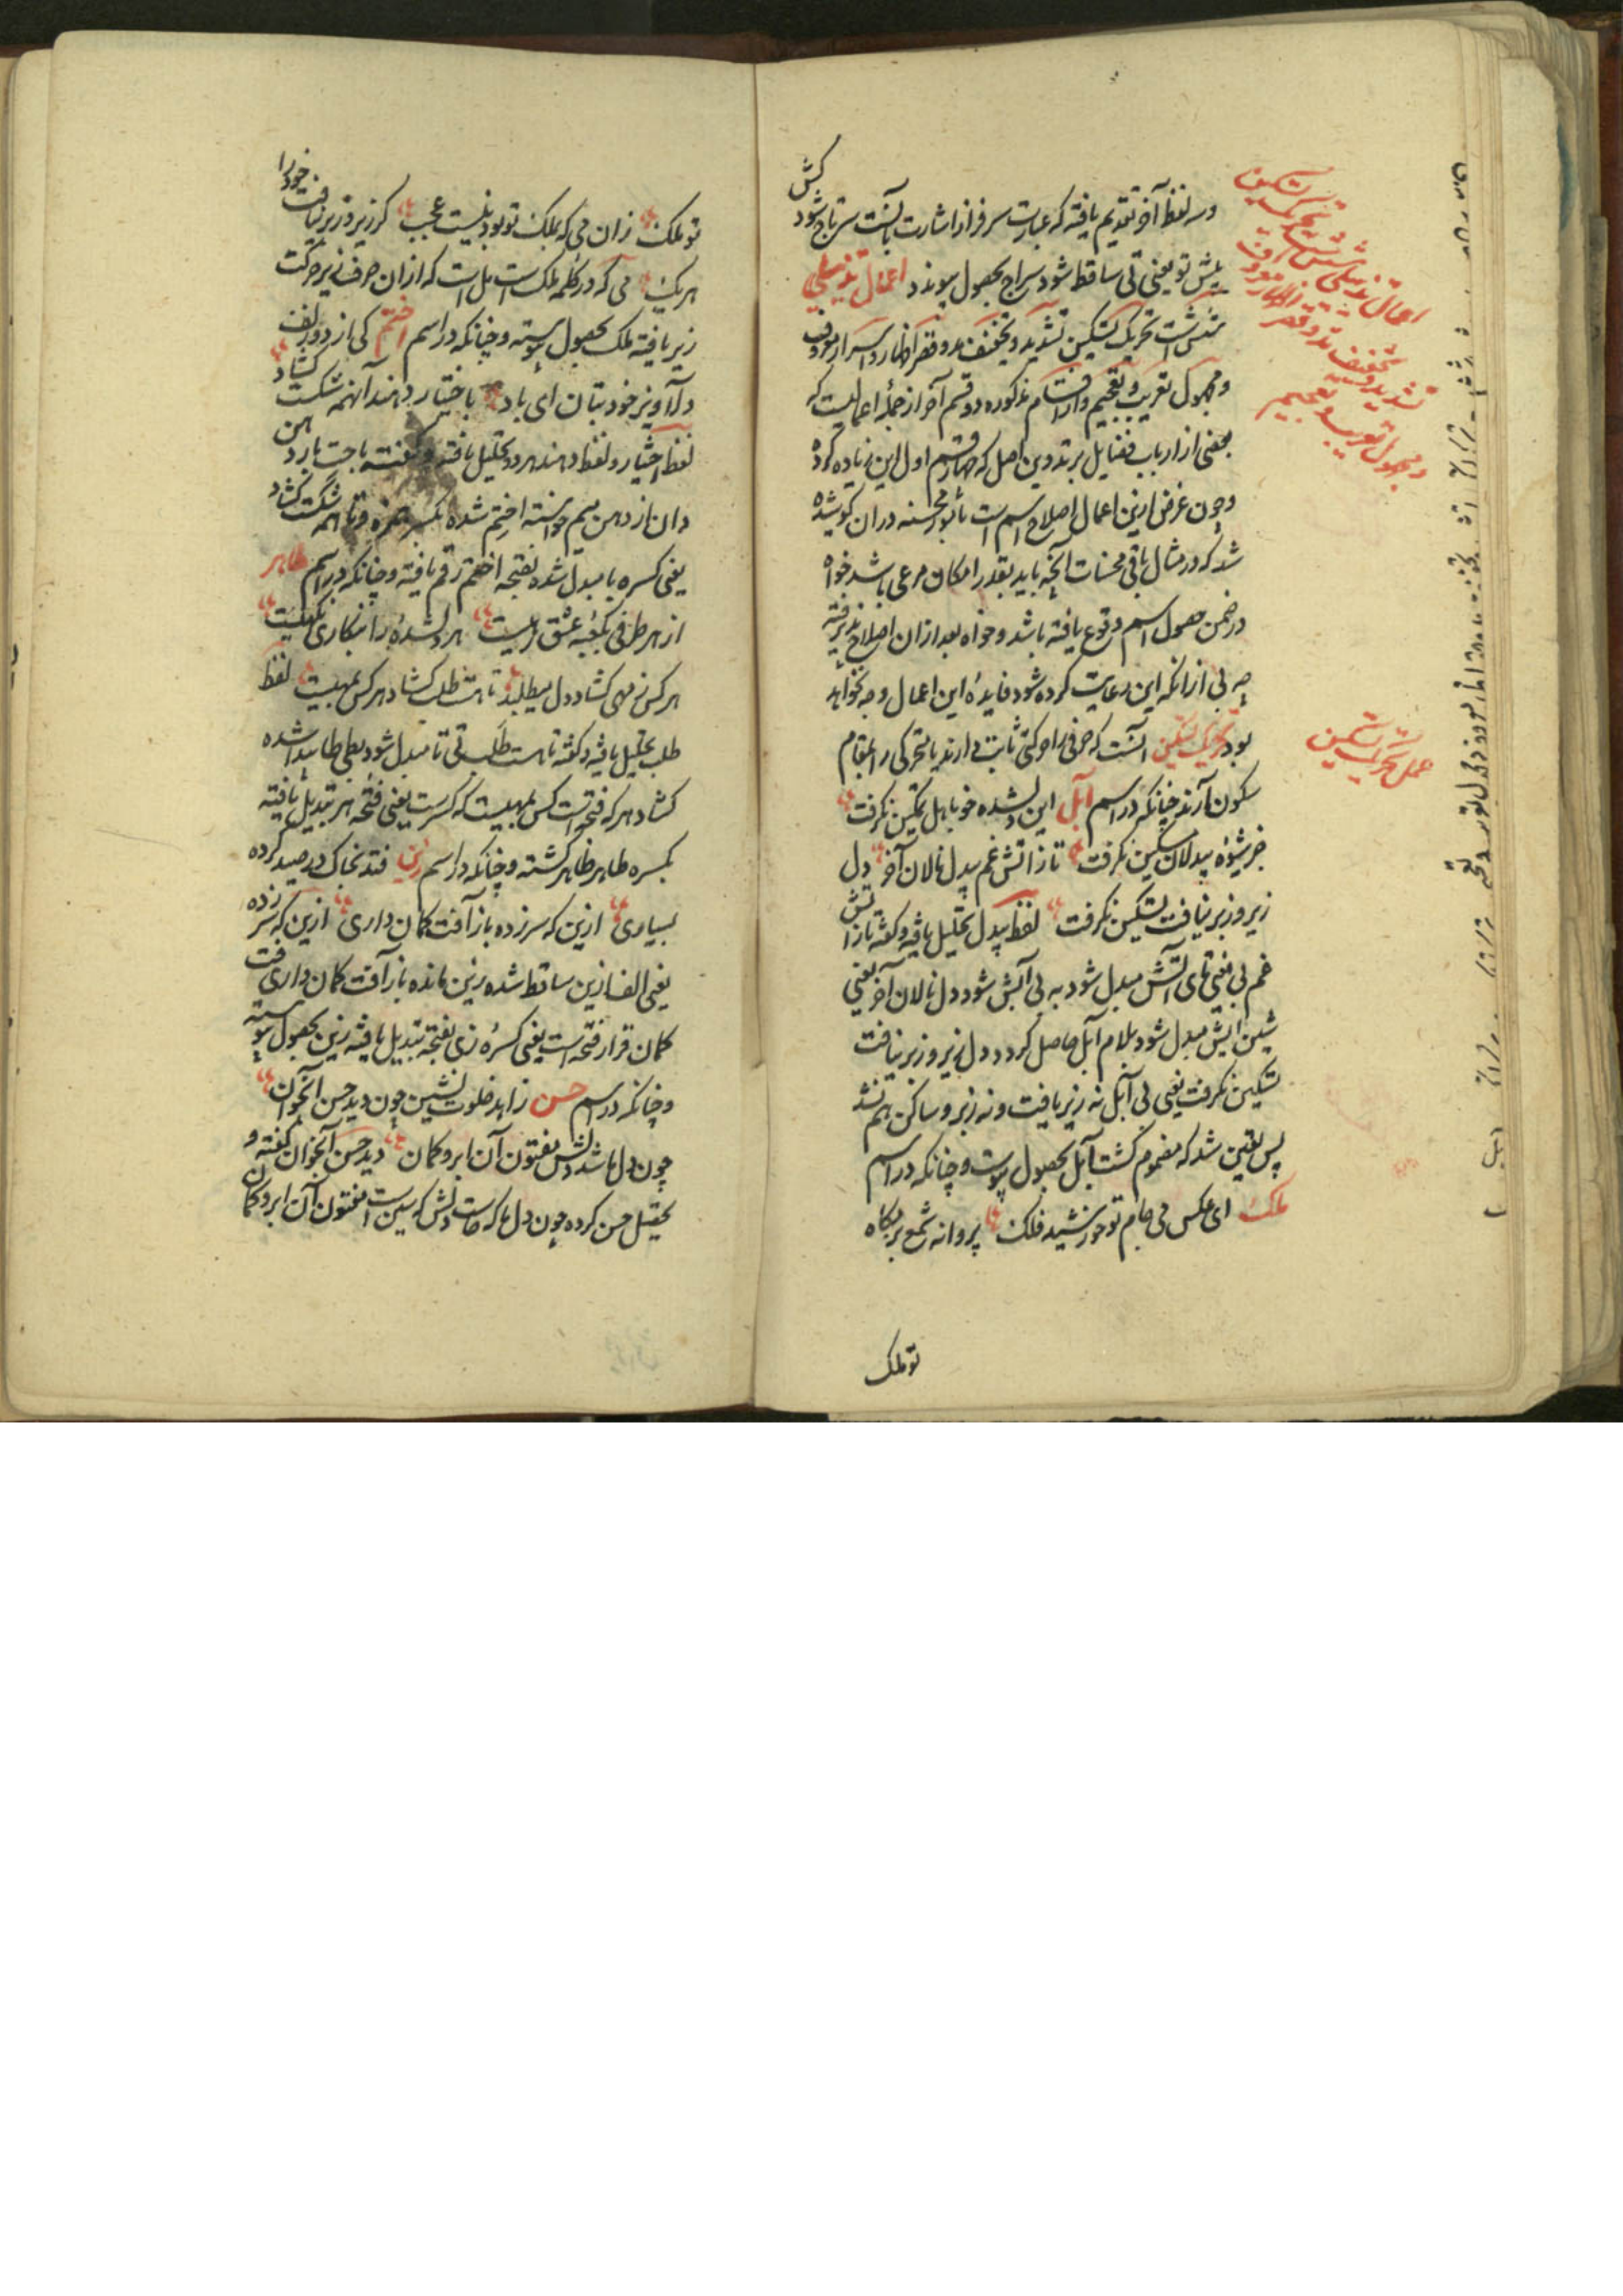 و سر لفظ آخر تقدیم یافته که عبارت سرفراز اشارت بآنست سرتاج شود کش
پیش تو یعنی تی ساقط شود سراج بحصول پیوندد اعمال تذییلی
شش است تحریک و تسکین تشدید و تخفیف مد و قصر اظهار و اسرار معروف
و مجهول تعریب و تعجیم و از اقسام مذکوره دو قسم آخر از جمله اعمالیست که
بعضی از ارباب فضایل بر تدوین اصل که چهار قسم اول این زیاده کرده
و چون غرض ازین اعمال اصلاح اسم است
شد که در مثال باقی محسنات آنچه باید بقدر امکان مرعی باشد خواه
در ضمن حصول اسم وقوع یافته باشد و خواه بعد ازان اصلاح پذیرفته
چه بی ازانکه این رعایت کرده شود فایده این اعمال وجه نخواهد
بود تحریک و تسکین آنست که حرفی را حرکتی ثابت دارند یا متحرکی را بمقام
سکون آرند چنانکه در اسم آبل این دلشده خو باهل تمکین نگرفت
جز شیوه بیدلان مسکین نگرفت تا ز آتش غم بیدل نالان آخر دل
زیر و زبر نیافت تسکین نگرفت لفظ بیدل تحلیل یافته و گفته تا ز آتش
غم بی یعنی تای آتش مبدل شود به بی آبش شود دل نالان آخر یعنی
شین آبش مبدل شود بلام آبل حاصل گردد دل زیر و زبر نیافت
تسکین نگرفت یعنی بی آبل نه زیر یافت و نه زبر و ساکن هم نشد
پس یقین شد که مضموم گشت آبل بحصول پیوست و چنانکه در اسم
ملک ای عکس می جام تو خورشید فلک پروانه شمع بزمگاه
تو ملک
اعمال تذییلی شش است تحریک و تسکین
تشدید و تخفیف مد و قصر اظهار معروف
و مجهول تعریب و تعجیم
عمل تحریک و تسکین
تو ملک زان می که بملک تو بود نیست عجب گر زیر و زبر نیافت خود را
هر یک می که در کلمه ملک است مل است که ازان حرف زیر حرکت
زیر یافته ملک بحصول پیوسته و چنانکه در اسم اختم کی از دو زلف
دلاویز خود بتان ای باد باختیار دهند آنهمه شکست گشاد
لفظ اختیار و لفظ دهند هر دو تحلیل یافته و گفته با خت یار دهن
دان از دهن میم خواسته اختم شده بکسر همزه و تا همه شکست گشاد
یعنی کسره با مبدل شده بفتحه اختم رقم یافته و چنانکه در اسم طاهر
از هر طرفی بکعبه عشق رهیست هر دلشده را بنکاری نگهیست
هر کس ز مهی گشاد دل میطلبد تا هست طلب گشاد هر کس بمهیست لفظ
طلب تحلیل یافته و گفته تا هست طلب تی تا مبدل شود بطی طا پیدا شده
گشاد هر که فتحه است کس بمهیست که کسرست یعنی فتحه هر تبدیل یافته
بکسره طاهر ظاهر گشته و چنانکه در اسم زین فتد بخاک در صید کرده
بسیاری ازین که سر زده باز آفت کمان داری ازین که سر زده
یعنی الف ازین ساقط شده زین مانده باز آفت کمان داری فت
کمان قرار فتحه است یعنی کسره زی بفتحه تبدیل یافته زین بحصول پیوسته
و چنانکه در اسم حسن زاهد خلوت نشین چون دید حسن آنجوان
چون دل ما شد دلش مفتون آن ابرو کمان دید حسن آنجوان گفته و
تحصیل حسن کرده چون دل ما که حاست دلش که سین است مفتون آن ابرو کمان